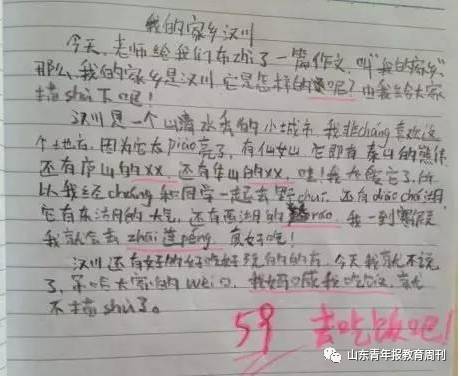 我的家乡汉川
今天,老师给我们布zhi了一篇作文,叫"我的家乡",
那么,我的家乡是汉川,它是怎样的呢?由我给大家
描shu下吧!
汉川是一个山清水秀的小城市,我非cháng喜欢这
个地方,因为它太piào亮了,有仙女山,它即有泰山的
还有庐山的xx,还有华山的xx,哇!我太爱它了,所
以我经cháng和同学一起去野chuī,还有diào chá湖,
它有东湖的大气,还有西湖的,我一到寒假
我就会去zhāi莲péng,真好吃!
汉川还有好的好吃好玩的的方,今天我就不说
了,吊吊大家的wèi口,我妈喊我吃饭,就
不描shu了。
59 去吃饭吧!
山东青年报教育周刊